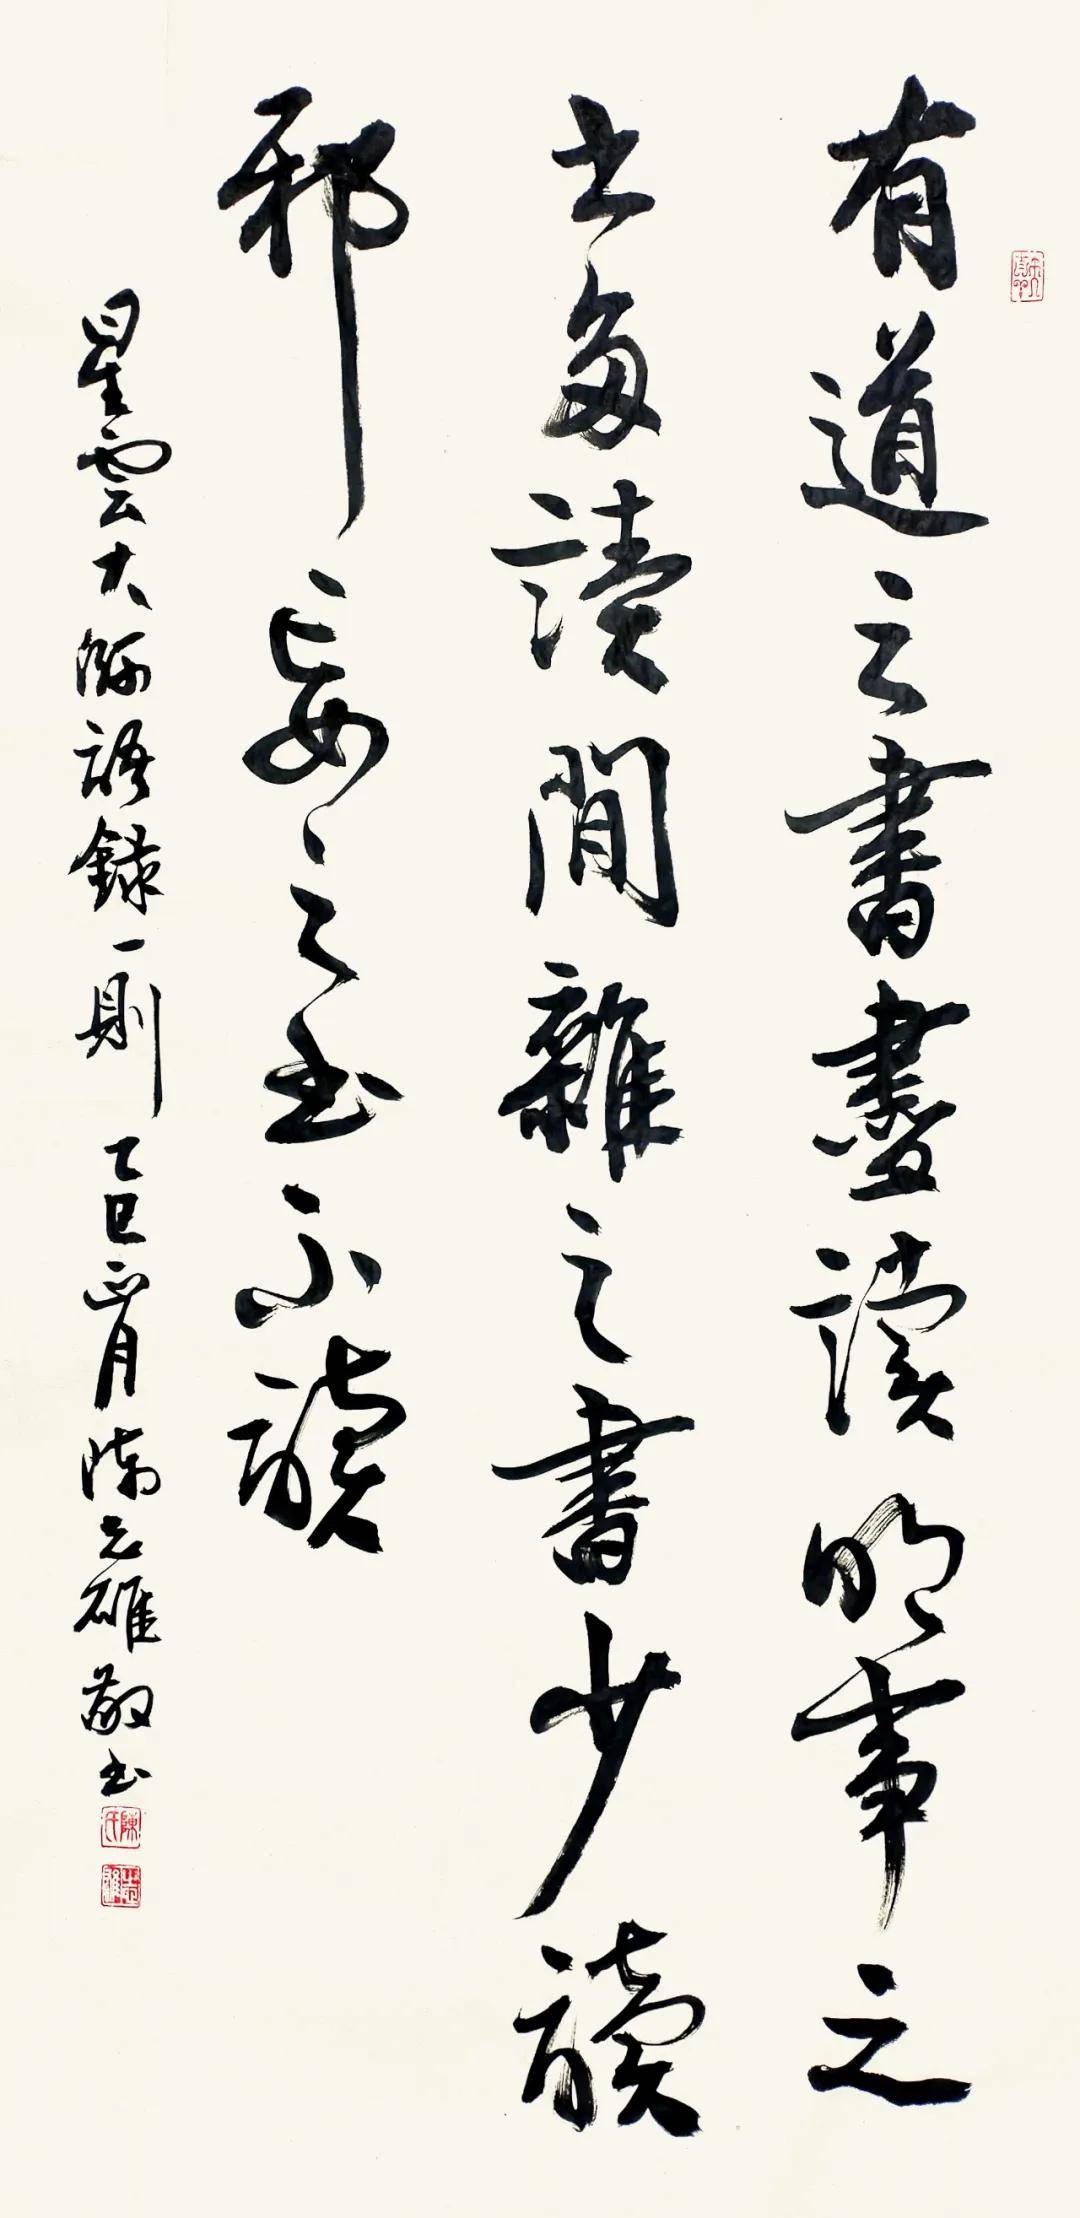 有道之書盡讀明事之
書多讀閒雜之書少讀
邪妄之書不讀
星雲大師語錄一則 乙巳正月 陳志雄敬書
陳氏
志雄